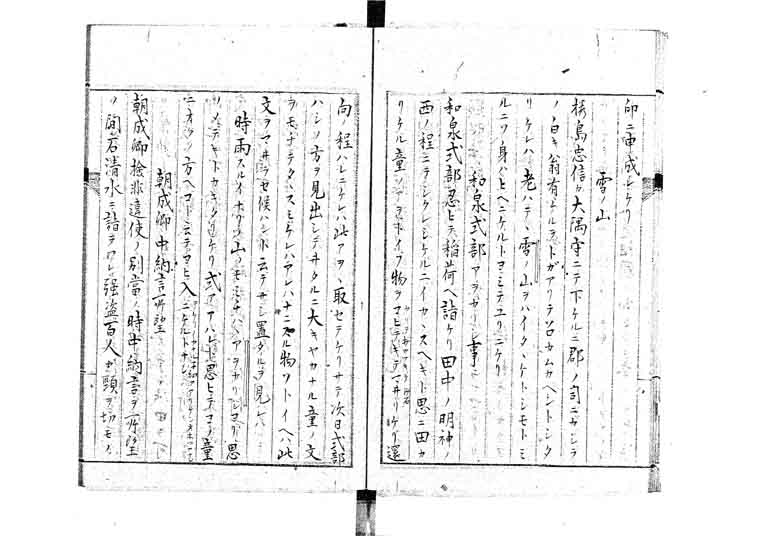 印ニ申成シケリ
雪ノ山
桜島忠信カ大隅守ニテ下ケルニ郡ノ司ニカシラ
ノ白キ翁有ケルヲトガアリテ召カムカヘントシタ
リケレハ老ハテヽ雪ノ山ヲハイタヽケトシモトミ
ルニソ身ハヒヘニケルトヨミテユリニケリ
和泉式部アヲカリシ事
和泉式部忍ヒテ稲荷ヘ詣ケリ田中ノ明神ノ
西ノ程ニテシクレシケルニイカヽスヘキト思ニ田カ
リケル童ノアヲト云物ヲ マヒテキテマヰリケリ還
向ノ程ハレニケレハ此アヲヽ取セテケリサテ次日式部
ハシノ方ヲ見出シテヰタルニ大キヤカナル童ノ文
ヲモチテタヽスミケレハアレハナニスル物ソトイヘハ此
文ヲマヰラセ候ハント云テサシ置タルヲ見レハ
時雨スルイナリノ山ノモミチハヽアヲカリシヨリ思
ソメテキトカキタリケリ式部アハレト思ヒテコノ童
ヲ 方ヘコト云テヨヒ入ニケルトナン
朝成卿中納言所望
朝成卿検非違使ノ別当ノ時中納言ヲ所望
ノ間石清水ニ詣テワレ強盗百人カ頸ヲ切モノ